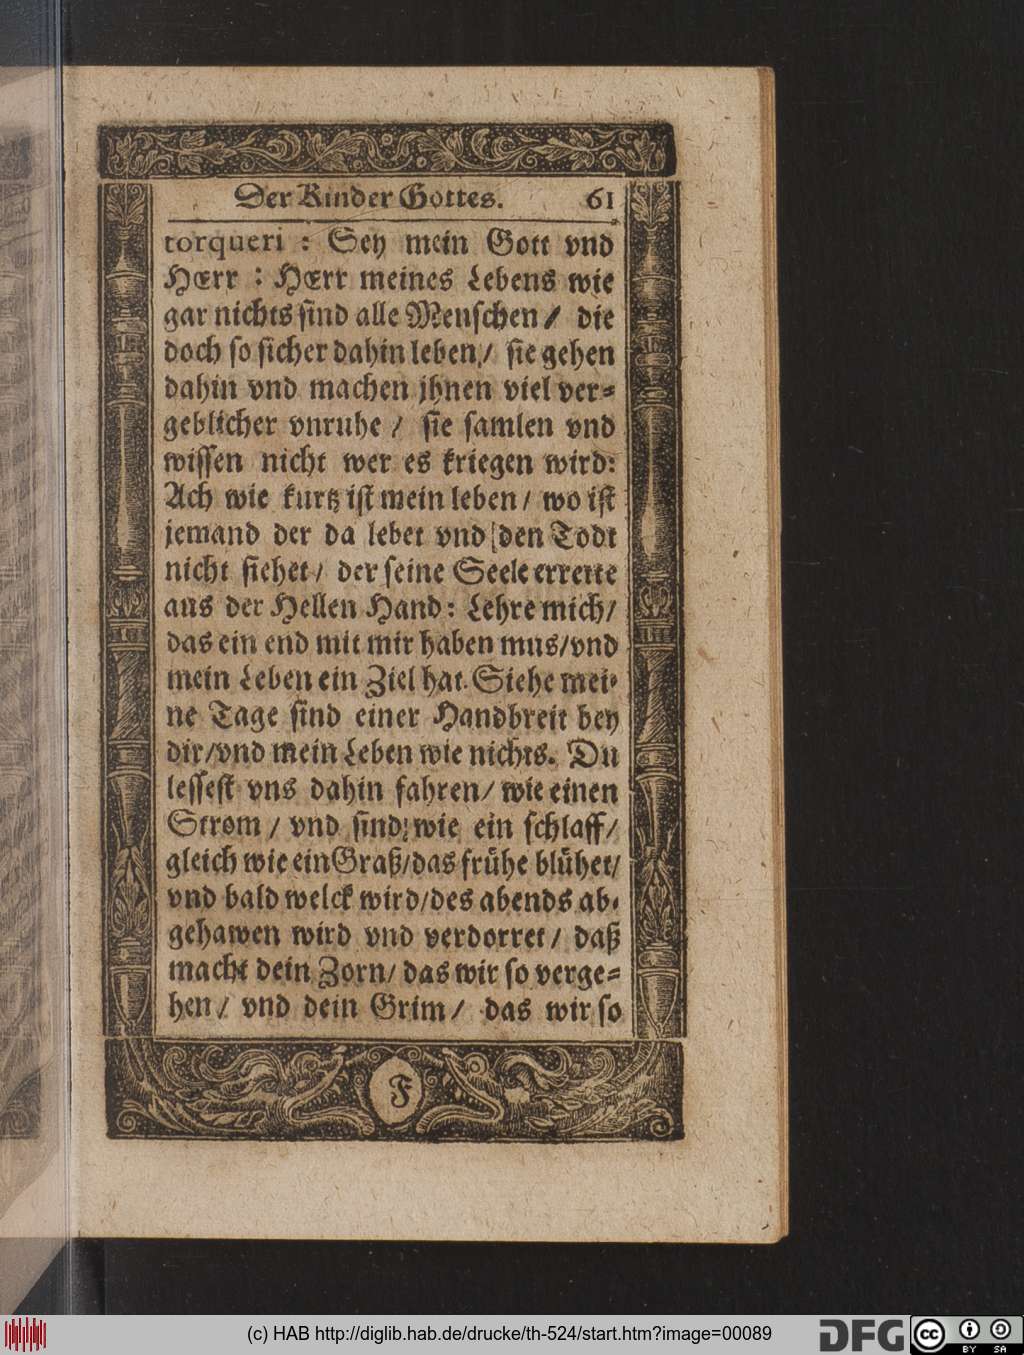 Der Kinder Gottes. 61
torqueri : Sey mein Gott vnd
HErr : HErr meines Lebens wie
gar nichts sind alle Menschen / die
doch so sicher dahin leben / sie gehen
dahin vnd machen jhnen viel ver⸗
geblicher vnruhe / sie samlen vnd
wissen nicht wer es kriegen wird:
Ach wie kurtz ist mein leben / wo ist
jemand der da lebet vnd den Todt
nicht siehet / der seine Seele errette
aus der Hellen Hand: Lehre mich /
das ein end mit mir haben mus / vnd
mein Leben ein Ziel hat. Siehe mei⸗
ne Tage sind einer Handbreit bey
dir / vnd mein Leben wie nichts. Du
lessest vns dahin fahren / wie einen
Strom / vnd sind wie ein schlaff /
gleich wie ein Graß / das frühe blühet /
vnd bald welck wird / des abends ab⸗
gehawen wird vnd verdorret / daß
macht dein Zorn / das wir so verge⸗
hen / vnd dein Grim / das wir so
F
(c) HAB http://diglib.hab.de/drucke/th-524/start.htm?image=00089
DFG
cc BY SA